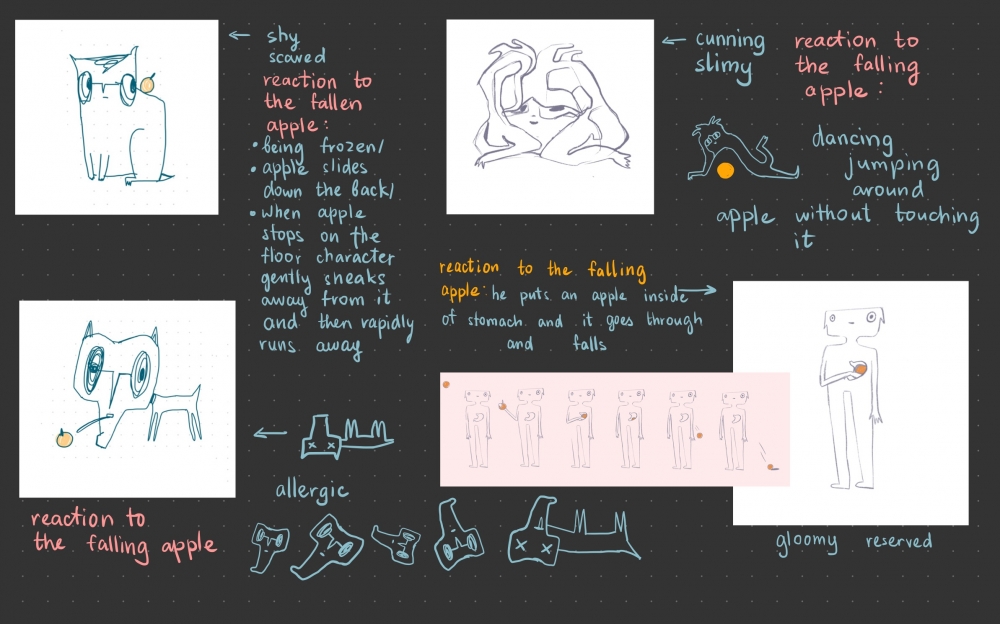 shy
scaved
reaction to
the fallen
apple:
• being frozen/
• apple slides
down the back/
• when apple
stops on the
floor character
gently sneaks
away from it
and then rapidly
runs away
cunning
slimy
reaction to
the falling
apple:
dancing
jumping
around
apple without touching
it
reaction to the falling
apple: he puts an apple inside
of stomach and it goes through
and falls
gloomy reserved
allergic
reaction to
the falling apple